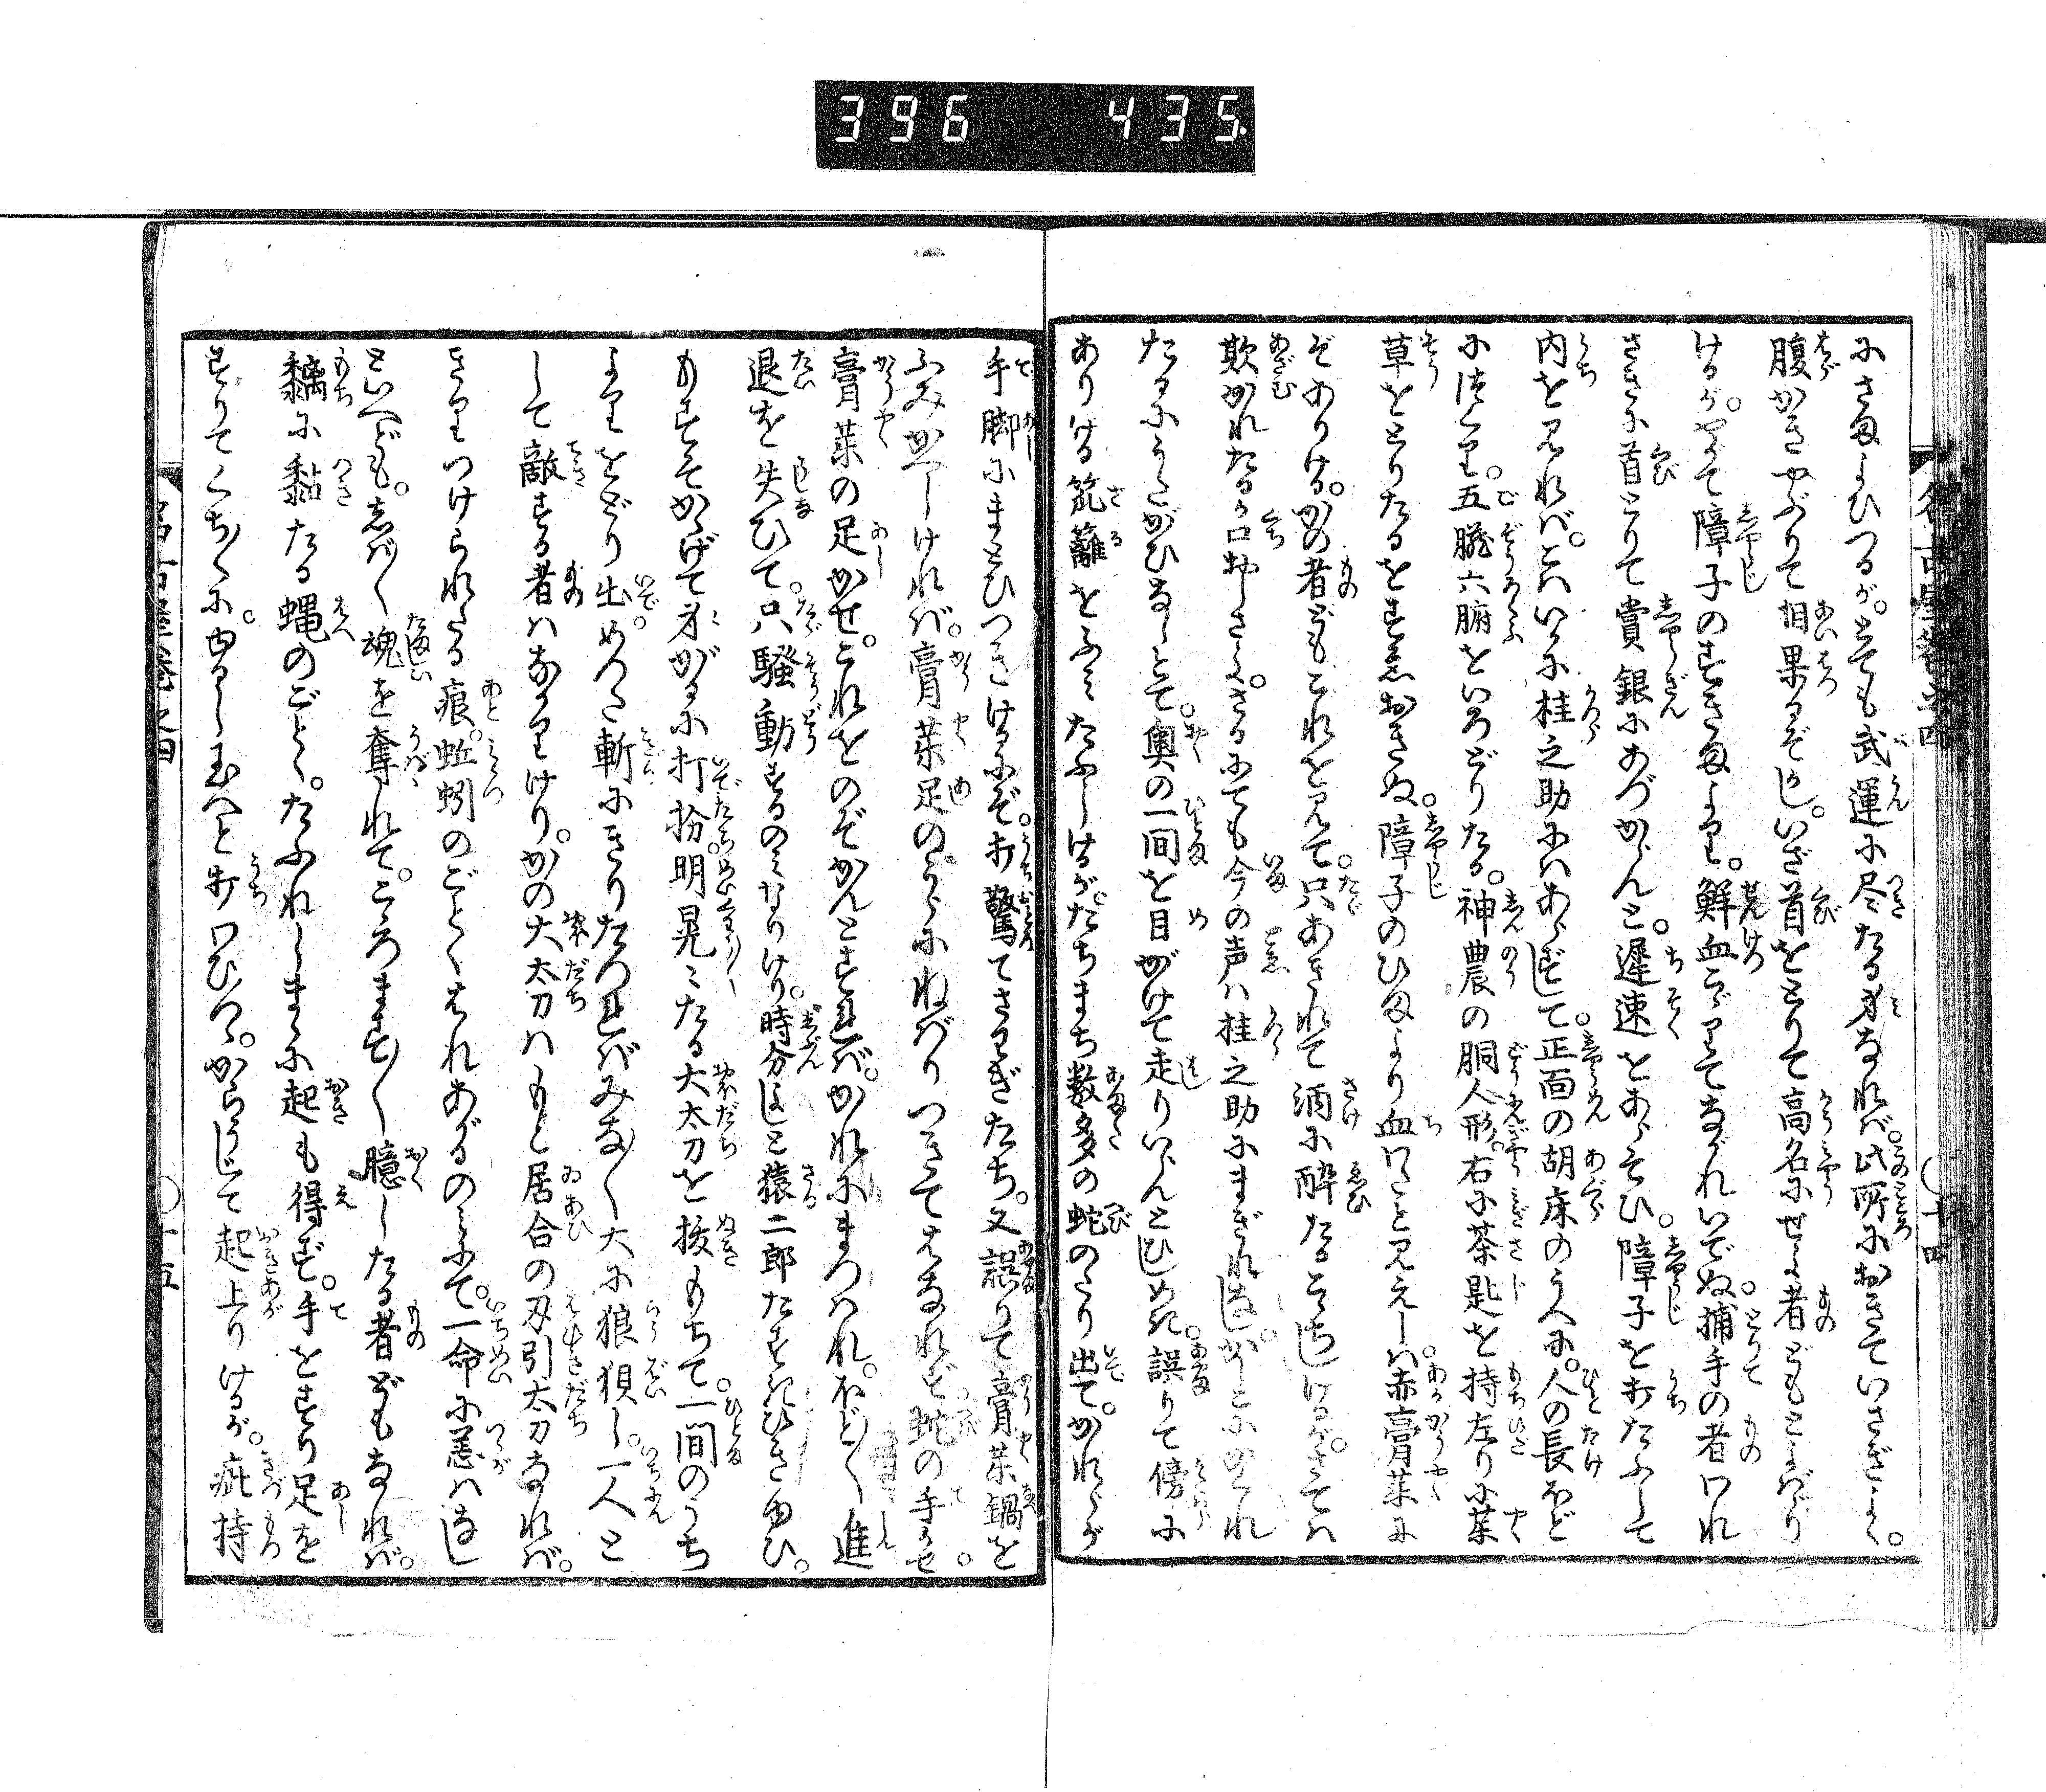 396 435
にさまよひつるが。とても武運に尽たる身なれば。此所におきていさぎよく。
腹かきやぶりて相果るぞかし。いざ首をとりて高名にせよ者どもとよばゞり
けるが。やがて障子のすきまより。鮮血こぼりてながれいでぬ。捕手の者われ
さきに首とりて賞銀にあづからんと。遅速をあらそひ。障子をおしたふして
内を見れば。こはいかに桂之助にはあらずして。正面の胡床のうへに。人の長ほど
につくり。五臓六腑をいろどりたる。神農の胴人形。右に茶匙を持左りに薬
草をとりたるをすゑおきぬ。障子のひまより血しほと見えしは赤膏薬に
ぞありける。かの者どもこれを見て。只あきれて酒に酔たるこゝちしけるが。さては
欺かれたるか口おしさよ。さるにても今の声は桂之助にまぎれなし。かしこにかくれ
たるにうたがひなしとて。奥の一間を目がけて走りいらんとひしめき。誤りて傍に
ありける笊籬をふみたふしけるが。たちまち数多の蛇のたり出て。かれらが
手脚にまとひつきけるにぞ。打驚てさわぎたち。又誤りて膏薬鍋を
ふみかへしければ。膏薬足のうらにねばりつきてはなれず。蛇の手かせ。
膏薬の足かせ。これをのぞかんとすれば。かれにまつはれ。ほど〳〵進
退を失ひて。只騒動するのみなりけり。時分はよしと猿二郎たすきひきゆひ。
もすそかゝげて身がるに打扮。明晃〻たる大太刀を抜もちて。一間のうち
よりをどり出。めつた斬にきりたつればみな〳〵大に狼狽し。一人と
して敵する者はなかりけり。かの大太刀はもと居合の刃引太刀なれば。
きりつけられたる痕。蚯蚓のごとくはれあがるのみにて。一命に恙はなし
といへども。しばらく魂を奪れて。ころます〳〵臆したる者どもなれば。
黐に黏たる蝿のごとく。たふれしまゝに起も得ず。手をすり足を
すりてくちぐちに。ゆるし玉へと打わびつゝ。からうじて起上りけるが。疵持